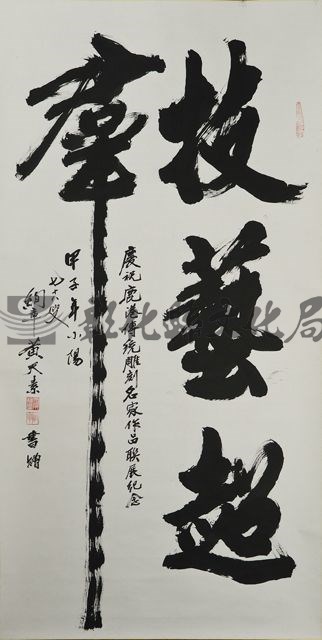 技藝超
羣
慶祝鹿港傳統雕刻名家作品聯展紀念
甲子年小陽
黃天素 書贈
彰化縣文化局